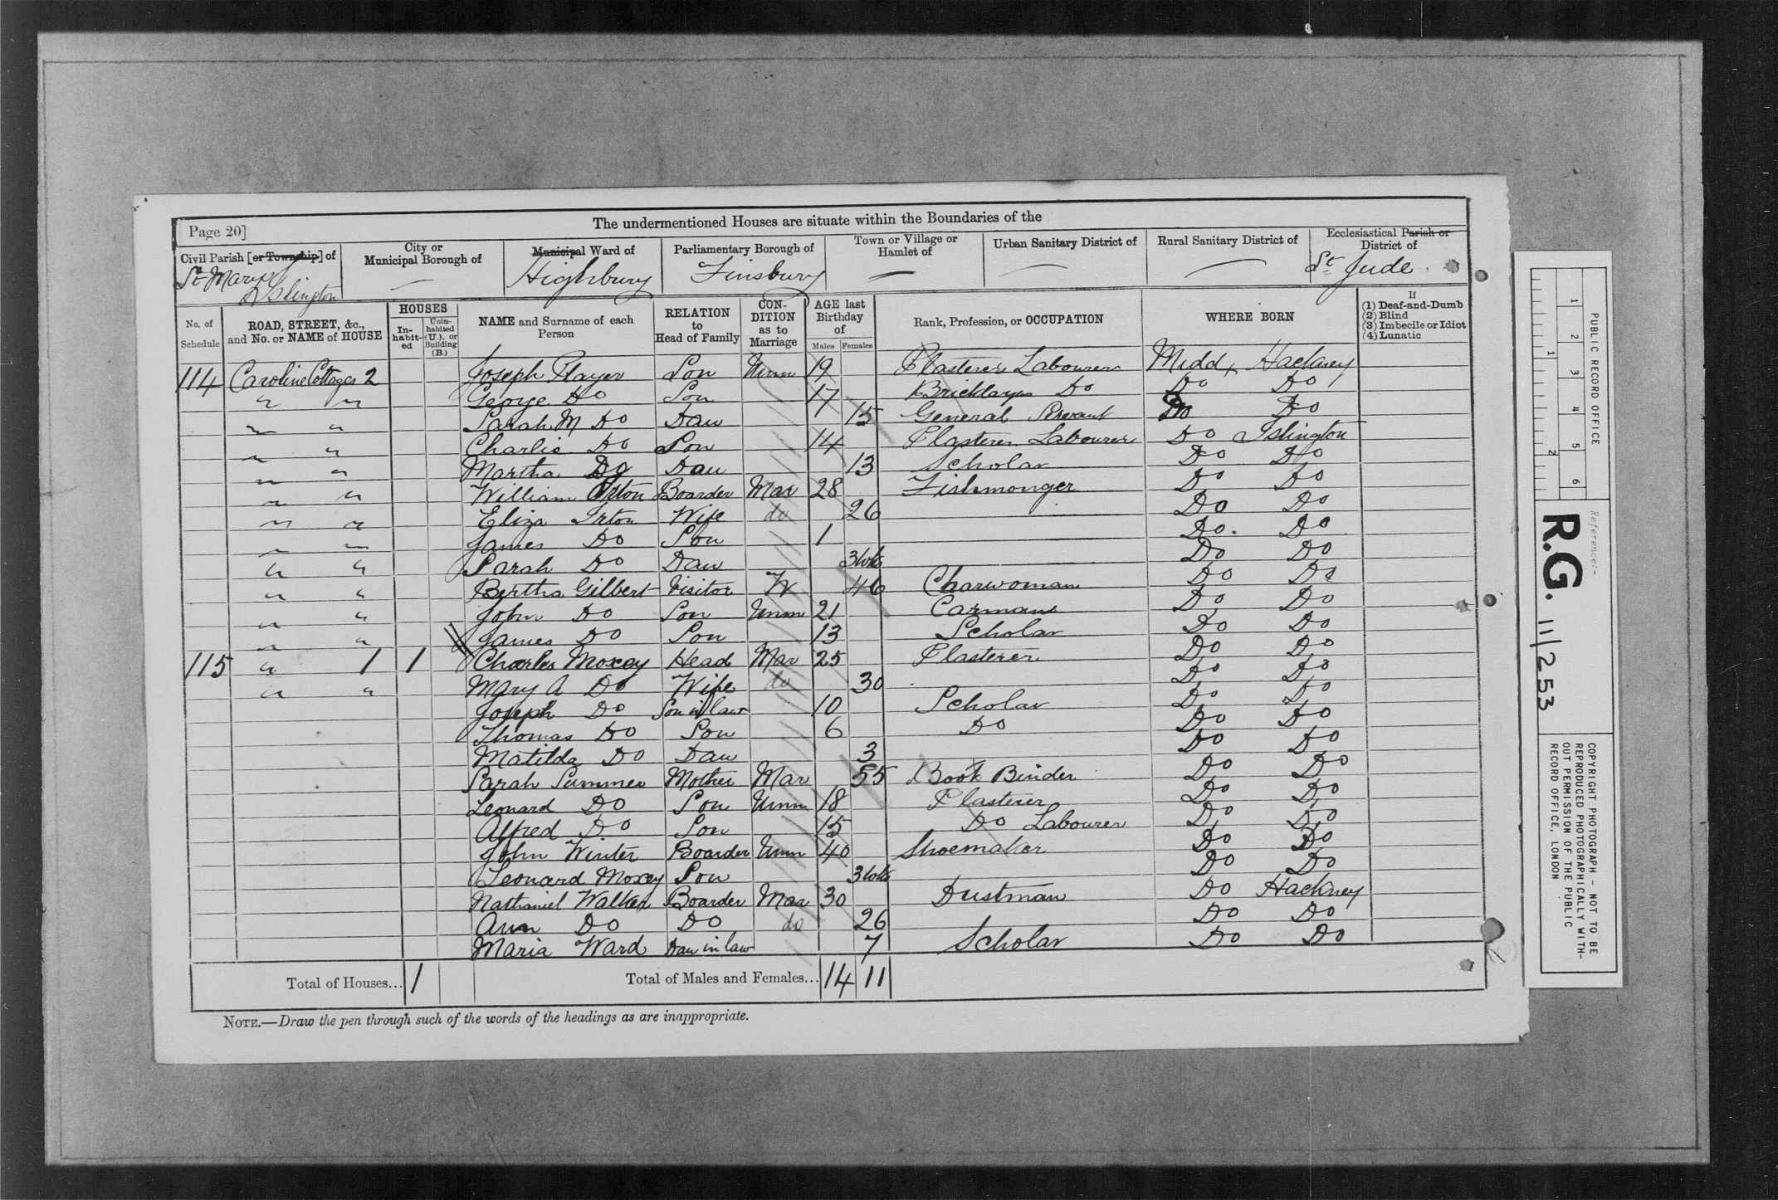 Page 20]
The undermentioned Houses are situate within the Boundaries of the
Civil Parish [or Township] of
City or Municipal Borough of
Municipal Ward of
Parliamentary Borough of
Town or Village or Hamlet of
Urban Sanitary District of
Rural Sanitary District of
Ecclesiastical Parish or District of
St Mary Islington — Highbury Finsbury — — — St Jude
No. of Schedule
ROAD, STREET, &c., and No. or NAME of HOUSE
HOUSES
In-habit-ed
Unin-habited (U.), or Building (B.)
NAME and Surname of each Person
RELATION to Head of Family
CON-DITION as to Marriage
AGE last Birthday of
Males Females
Rank, Profession, or OCCUPATION
WHERE BORN
If
(1) Deaf-and-Dumb
(2) Blind
(3) Imbecile or Idiot
(4) Lunatic
114 Caroline Cottages 2 Joseph Player Son Unm 19 Plasterers Labourer Middx Hackney
" " George Do Son 17 Bricklayers Do Do Do
" " Sarah M Do Daw 15 General Servant Do Do
" " Charlie Do Son 14 Plasterer Labourer Do Islington
" " Martha Do Daw 13 Scholar Do Do
" " William Orton Boarder Mar 28 Fishmonger Do Do
" " Eliza Wife do 26 Do Do
" " James Do Son 1 Do Do
" " Sarah Do Daw 3wks Do Do
" " Bertha Gilbert Visitor W 46 Charwoman Do Do
" " John Do Son Unm 21 Carmans Do Do
" " James Do Son 13 Scholar Do Do
115 " 1 1 Charles Moxey Head Mar 25 Plasterer Do Do
" " Mary A Do Wife do 30 Do Do
Joseph Do Son in law 10 Scholar Do Do
Thomas Do Son 6 Do Do Do
Matilda Do Daw 3 Do Do
Sarah Summer Mother Mar 55 Book Binder Do Do
Leonard Do Son Unm 18 Plasterer Do Do
Alfred Do Son 15 Do Labourer Do Do
John Winter Boarder Unm 40 Shoemaker Do Do
Leonard Moxey Son 3wks Do Do
Nathaniel Walker Boarder Mar 30 Dustman Do Hackney
Ann Do Do do 26 Do Do
Maria Ward Daw in law 7 Scholar Do Do
Total of Houses... 1 Total of Males and Females... 14 11
NOTE.—Draw the pen through such of the words of the headings as are inappropriate.
1 2 3 4 5 6
1 2
PUBLIC RECORD OFFICE
Reference:-
R.G. 11/253
COPYRIGHT PHOTOGRAPH - NOT TO BE
REPRODUCED PHOTOGRAPHICALLY WITH-
OUT PERMISSION OF THE PUBLIC
RECORD OFFICE, LONDON